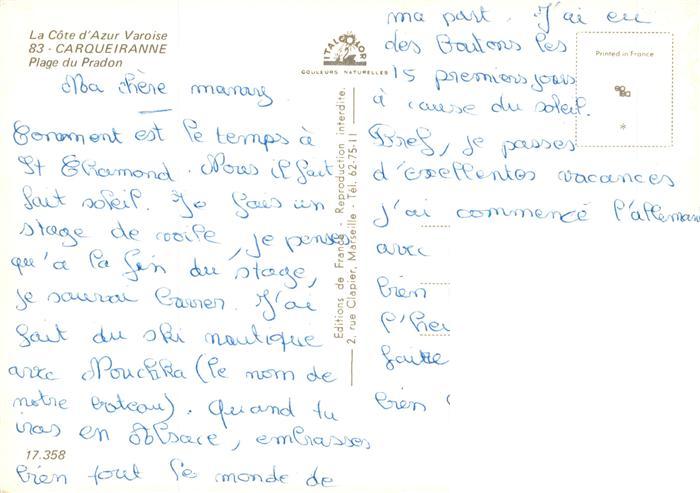 La Côte d'Azur Varoise
83 - CARQUEIRANNE
Plage du Pradon
Ma chère mamy
Comment est le temps à
St Chamond. Nous il fait
fait soleil. Je fais un
stage de voile, je penses
qu'a la fin du stage,
je saurai barrer. J'ai
fait du ski nautique
avec Mouchka (le nom de
notre bateau). Quand tu
iras en Alsace, embrasses
bien tout le monde de
17.358
ITALCOLOR
COULEURS NATURELLES
Editions de France - Reproduction interdite.
2, rue Clapier, Marseille - Tél. 62-75-11
ma part. J'ai eu
des Boutons les
15 premiers jours
à cause du soleil.
Bref, je passes
d'excellentes vacances
j'ai commencé l'alleman
avec
bien
l'heu
faite
bien
Printed in France